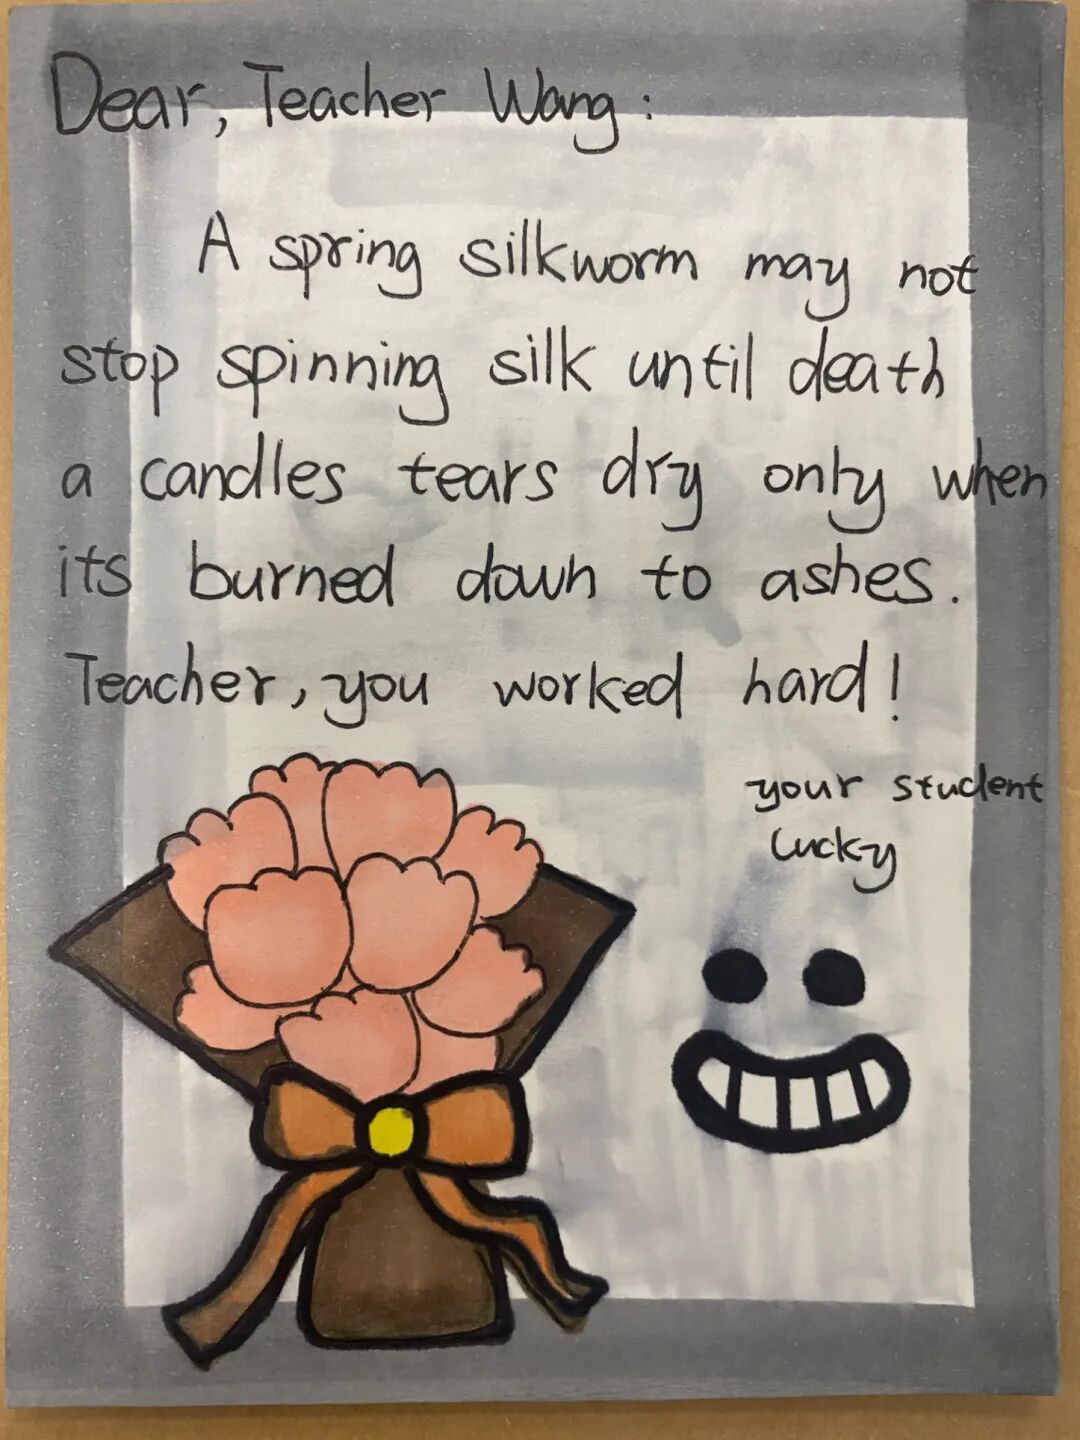 Dear, Teacher Wang:
A spring silkworm may not
stop spinning silk until death
a candles tears dry only when
its burned down to ashes.
Teacher, you worked hard!
your student
lucky